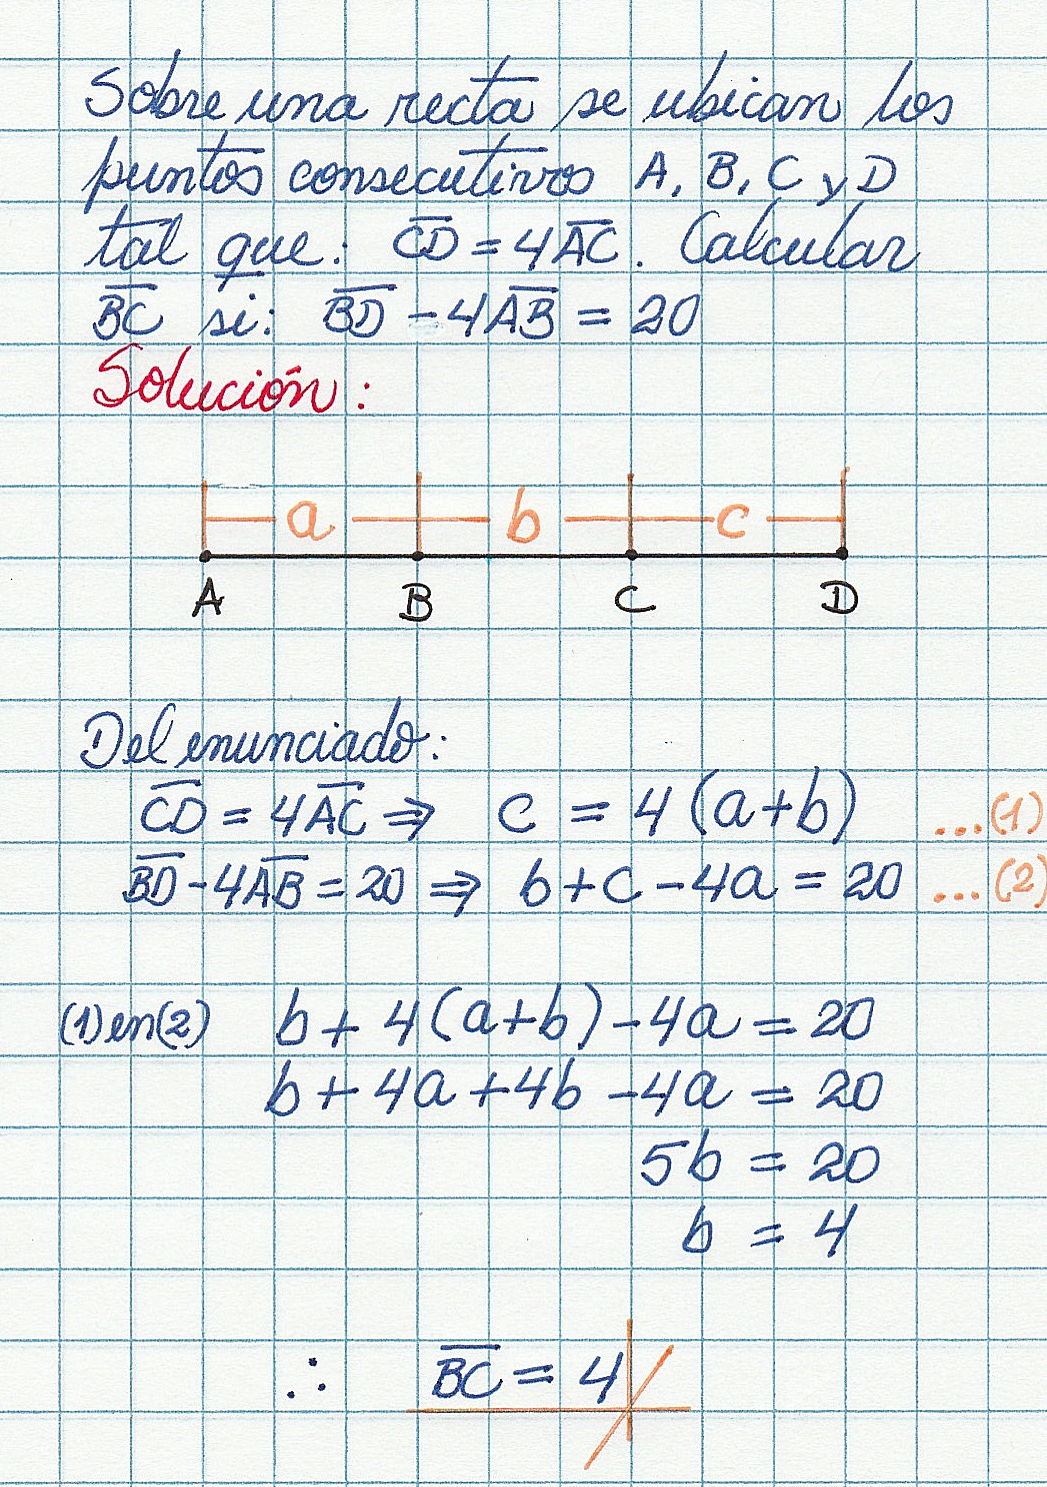 Sobre una recta se ubican los
puntos consecutivos A, B, C y D
tal que: C̅D̅ = 4A̅C̅. Calcular
B̅C̅ si: B̅D̅ - 4A̅B̅ = 20
Solución:
a b c
A B C D
Del enunciado:
C̅D̅ = 4A̅C̅ ⇒ c = 4(a+b) ...(1)
B̅D̅ - 4A̅B̅ = 20 ⇒ b + c - 4a = 20 ...(2)
(1) en (2) b + 4(a+b) - 4a = 20
b + 4a + 4b - 4a = 20
5b = 20
b = 4
∴ B̅C̅ = 4